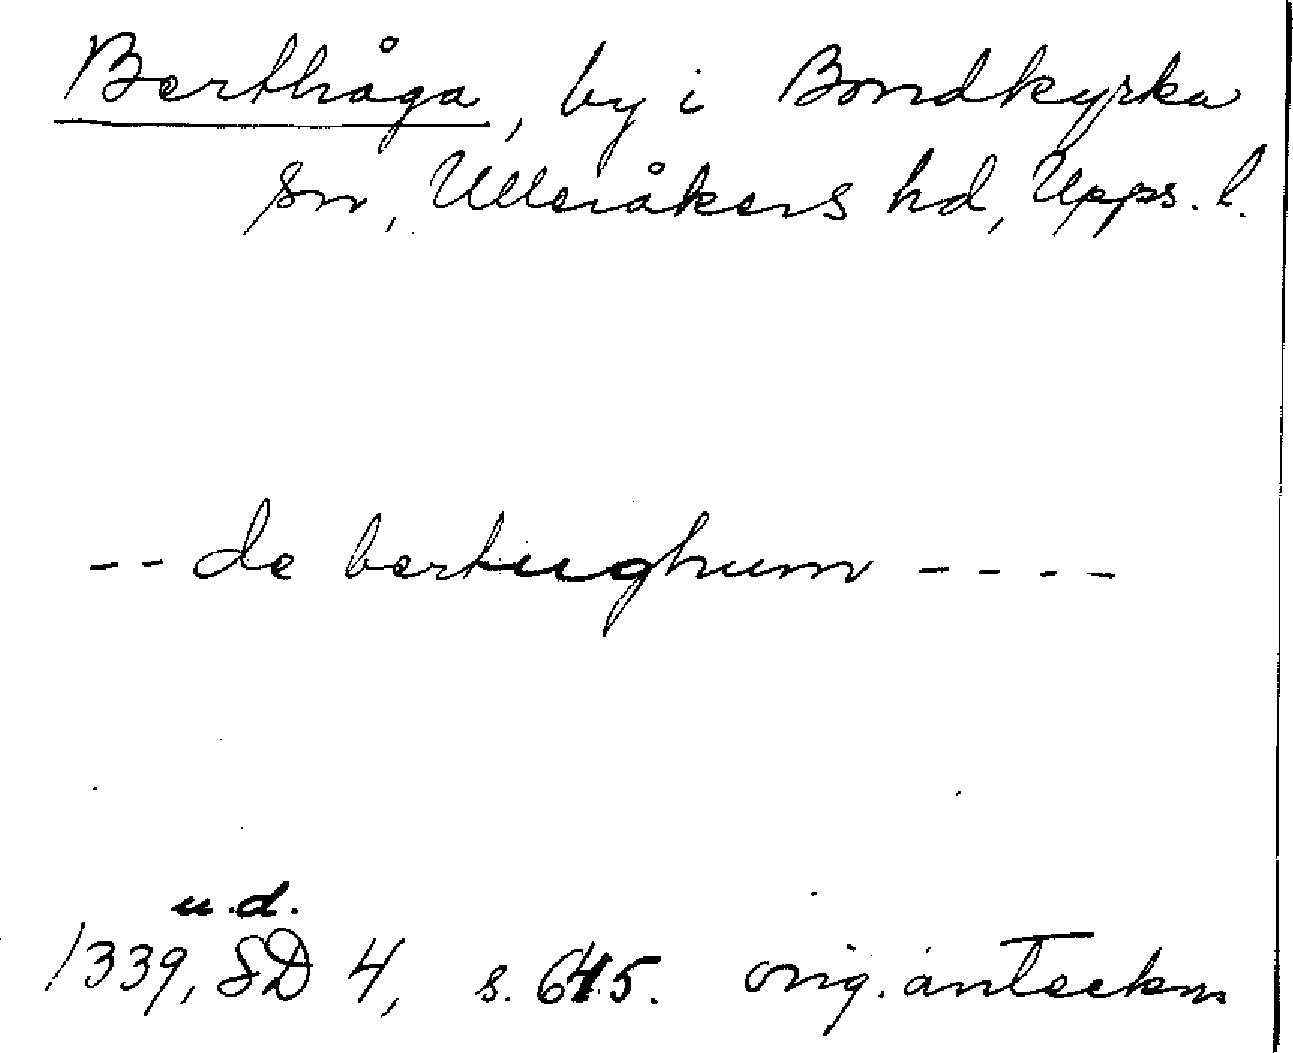 Berthåga, by i Bondkyrka
sn, Ulleråkers hd, Upps. l.
-- de bertughum ----
u.d.
1339, SD 4, s. 645. orig. anteckn